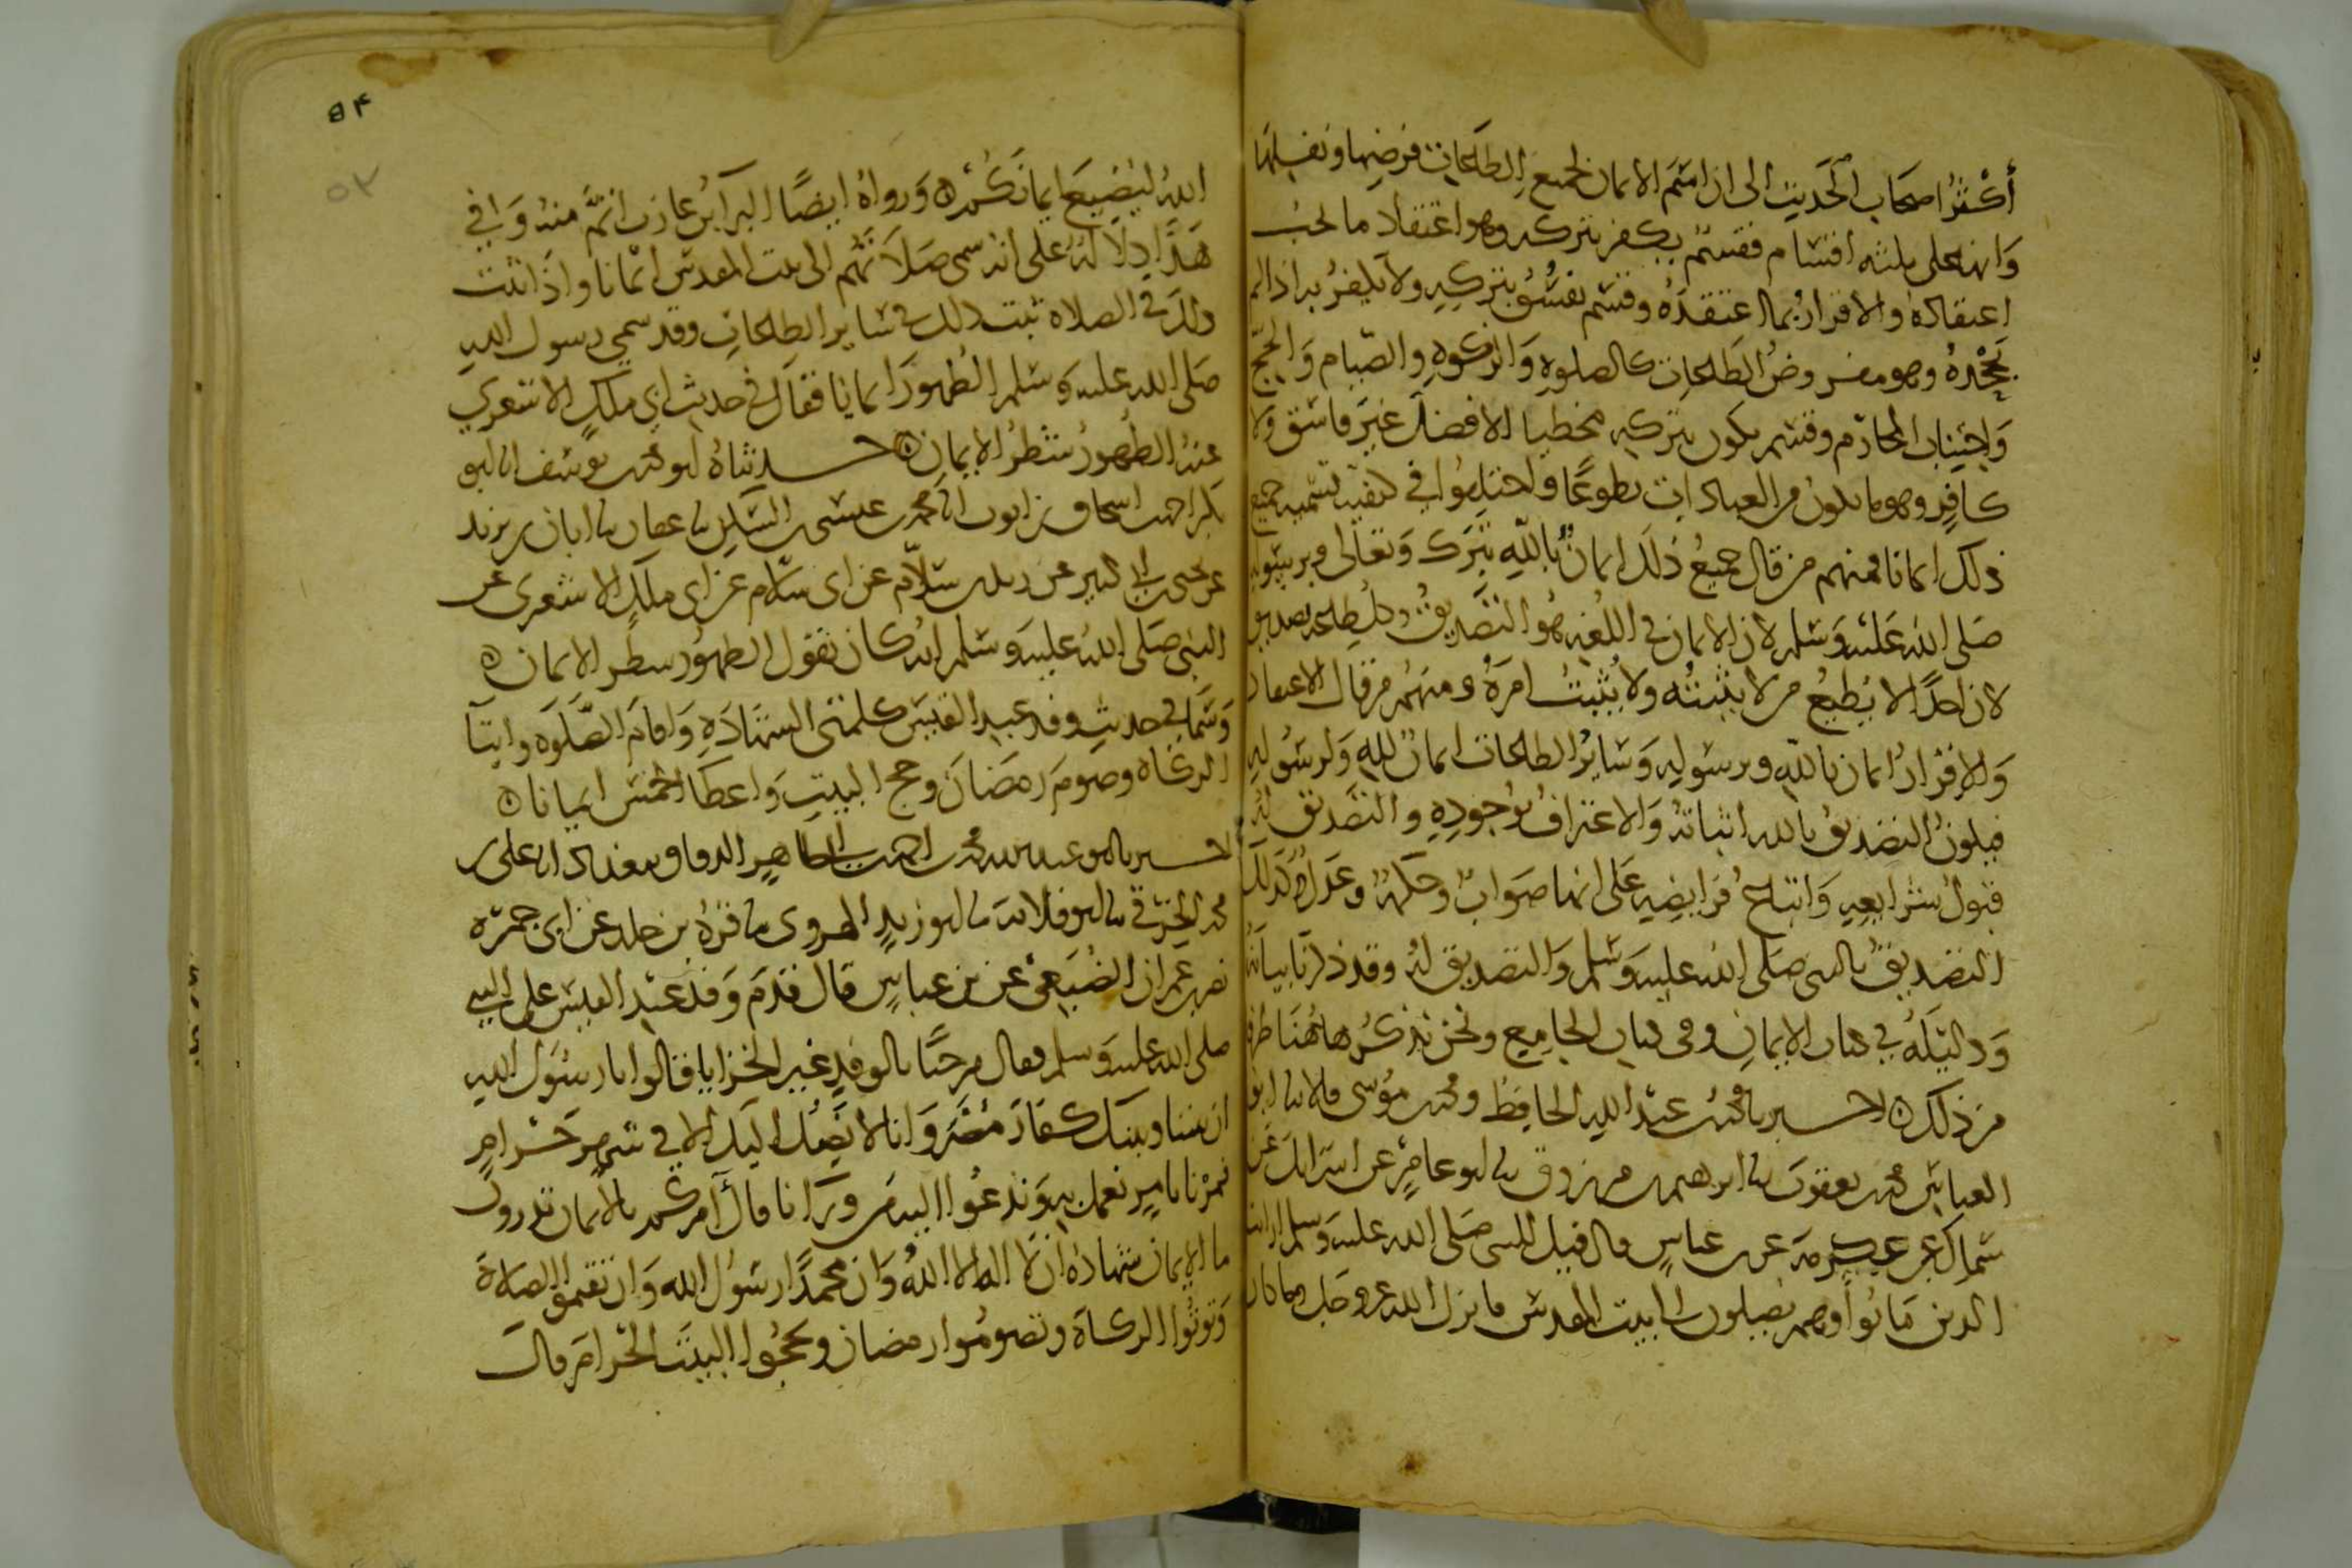 أكثر اصحاب الحديث الى ان اسم الايمان لجميع الطاعات فرضها ونفلها
وانها على ثلثه اقسام فقسم يكفر بتركه وهو اعتقاد ما يجب
اعتقاده والاقرار بما اعتقده وقسم يفسق بتركه ولا يكفر به اذا لم
يجحده وهو مفروض الطاعات كالصلوة والزكوة والصيام والحج
واجتناب المحارم وقسم يكون بتركه مخطيا للافضل غير فاسق ولا
كافر وهو ما يكون من العبادات تطوعا واختلفوا في كيفية تسميه جميع
ذلك ايمانا فمنهم من قال جميع ذلك ايمان بالله تبرك وتعالى وبرسوله
صلى الله عليه وسلم لان الايمان في اللغه هو التصديق وكل طاعه تصديق
لان احدا لا يطيع من لا يثبته ولا يثبت امره ومنهم من قال الاعتقاد
والاقرار ايمان بالله وبرسوله وسائر الطاعات ايمان لله ولرسوله
فيكون التصديق بالله اثباته والاعتراف بوجوده والتصديق له
قبول شرايعه واتباع فرايضه على انها صواب وحكمة وعدل وكذلك
التصديق بالنبي صلى الله عليه وسلم والتصديق له وقد ذكرنا بيانه
ودليله في كتاب الايمان وفي كتاب الجامع ونحن نذكر هاهنا طرفا
من ذلك ه اخبرنا محمد بن عبد الله الحافظ ومحمد بن موسى قالا نا ابو
العباس محمد بن يعقوب نا ابرهيم بن مرزوق نا ابو عامر عن اسرائل عن
سماك عن عكرمه عن بن عباس قال قيل للنبي صلى الله عليه وسلم ارايت
الذين ماتوا وهم يصلون الى بيت المقدس فانزل الله عز وجل وما كان
الله ليضيع ايمانكم ه ورواه ايضا البرآ بن عازب اتم منه وافي
هذا دلالة على انه سمى صلاتهم الى بيت المقدس ايمانا واذا ثبت
ذلك في الصلاة ثبت ذلك في سائر الطاعات وقد سمي رسول الله
صلى الله عليه وسلم الطهور ايمانا فقال في حديث ابي ملك الاشعري
عنه الطهور شطر الايمان ه حدثناه ابو محمد بن يوسف انا ابو
بكر احمد بن اسحاق بن ايوب انا محمد بن عيسى بن السكن نا عفان نا ابان بن يزيد
عن يحيى بن ابي كثير عن زيد بن سلام عن ابي سلام عن ابي ملك الاشعري عن
النبي صلى الله عليه وسلم انه كان يقول الطهور شطر الايمان ه
وسما في حديث وفد عبد القيس كلمتي الشهادة واقام الصلوه وايتآ
الزكاة وصوم رمضان وحج البيت واعطا الخمس ايمانا ه
اخبرنا ابو عبد الله محمد بن احمد بن ابي طاهر الدقاق ببغداد انا علي بن
محمد الخرقي نا ابو قلابة نا ابو زيد الهروي نا قرة بن خلد عن ابي جمرة
نصر بن عمران الضبعي عن بن عباس قال قدم وفد عبد القيس على النبي
صلى الله عليه وسلم فقال مرحبا بالوفد غير الخزايا فقالوا يا رسول الله
ان بيننا وبينك كفار مضر وانا لا نصل اليك الا في شهر حرام
فمرنا بامر نعمل به وندعوا اليه من ورآنا قال آمركم بالايمان تدرون
ما الايمان شهادة ان لا اله الا الله وان محمدا رسول الله وان تقيموا الصلاة
وتوتوا الزكاة وتصوموا رمضان وتحجوا البيت الحرام قال